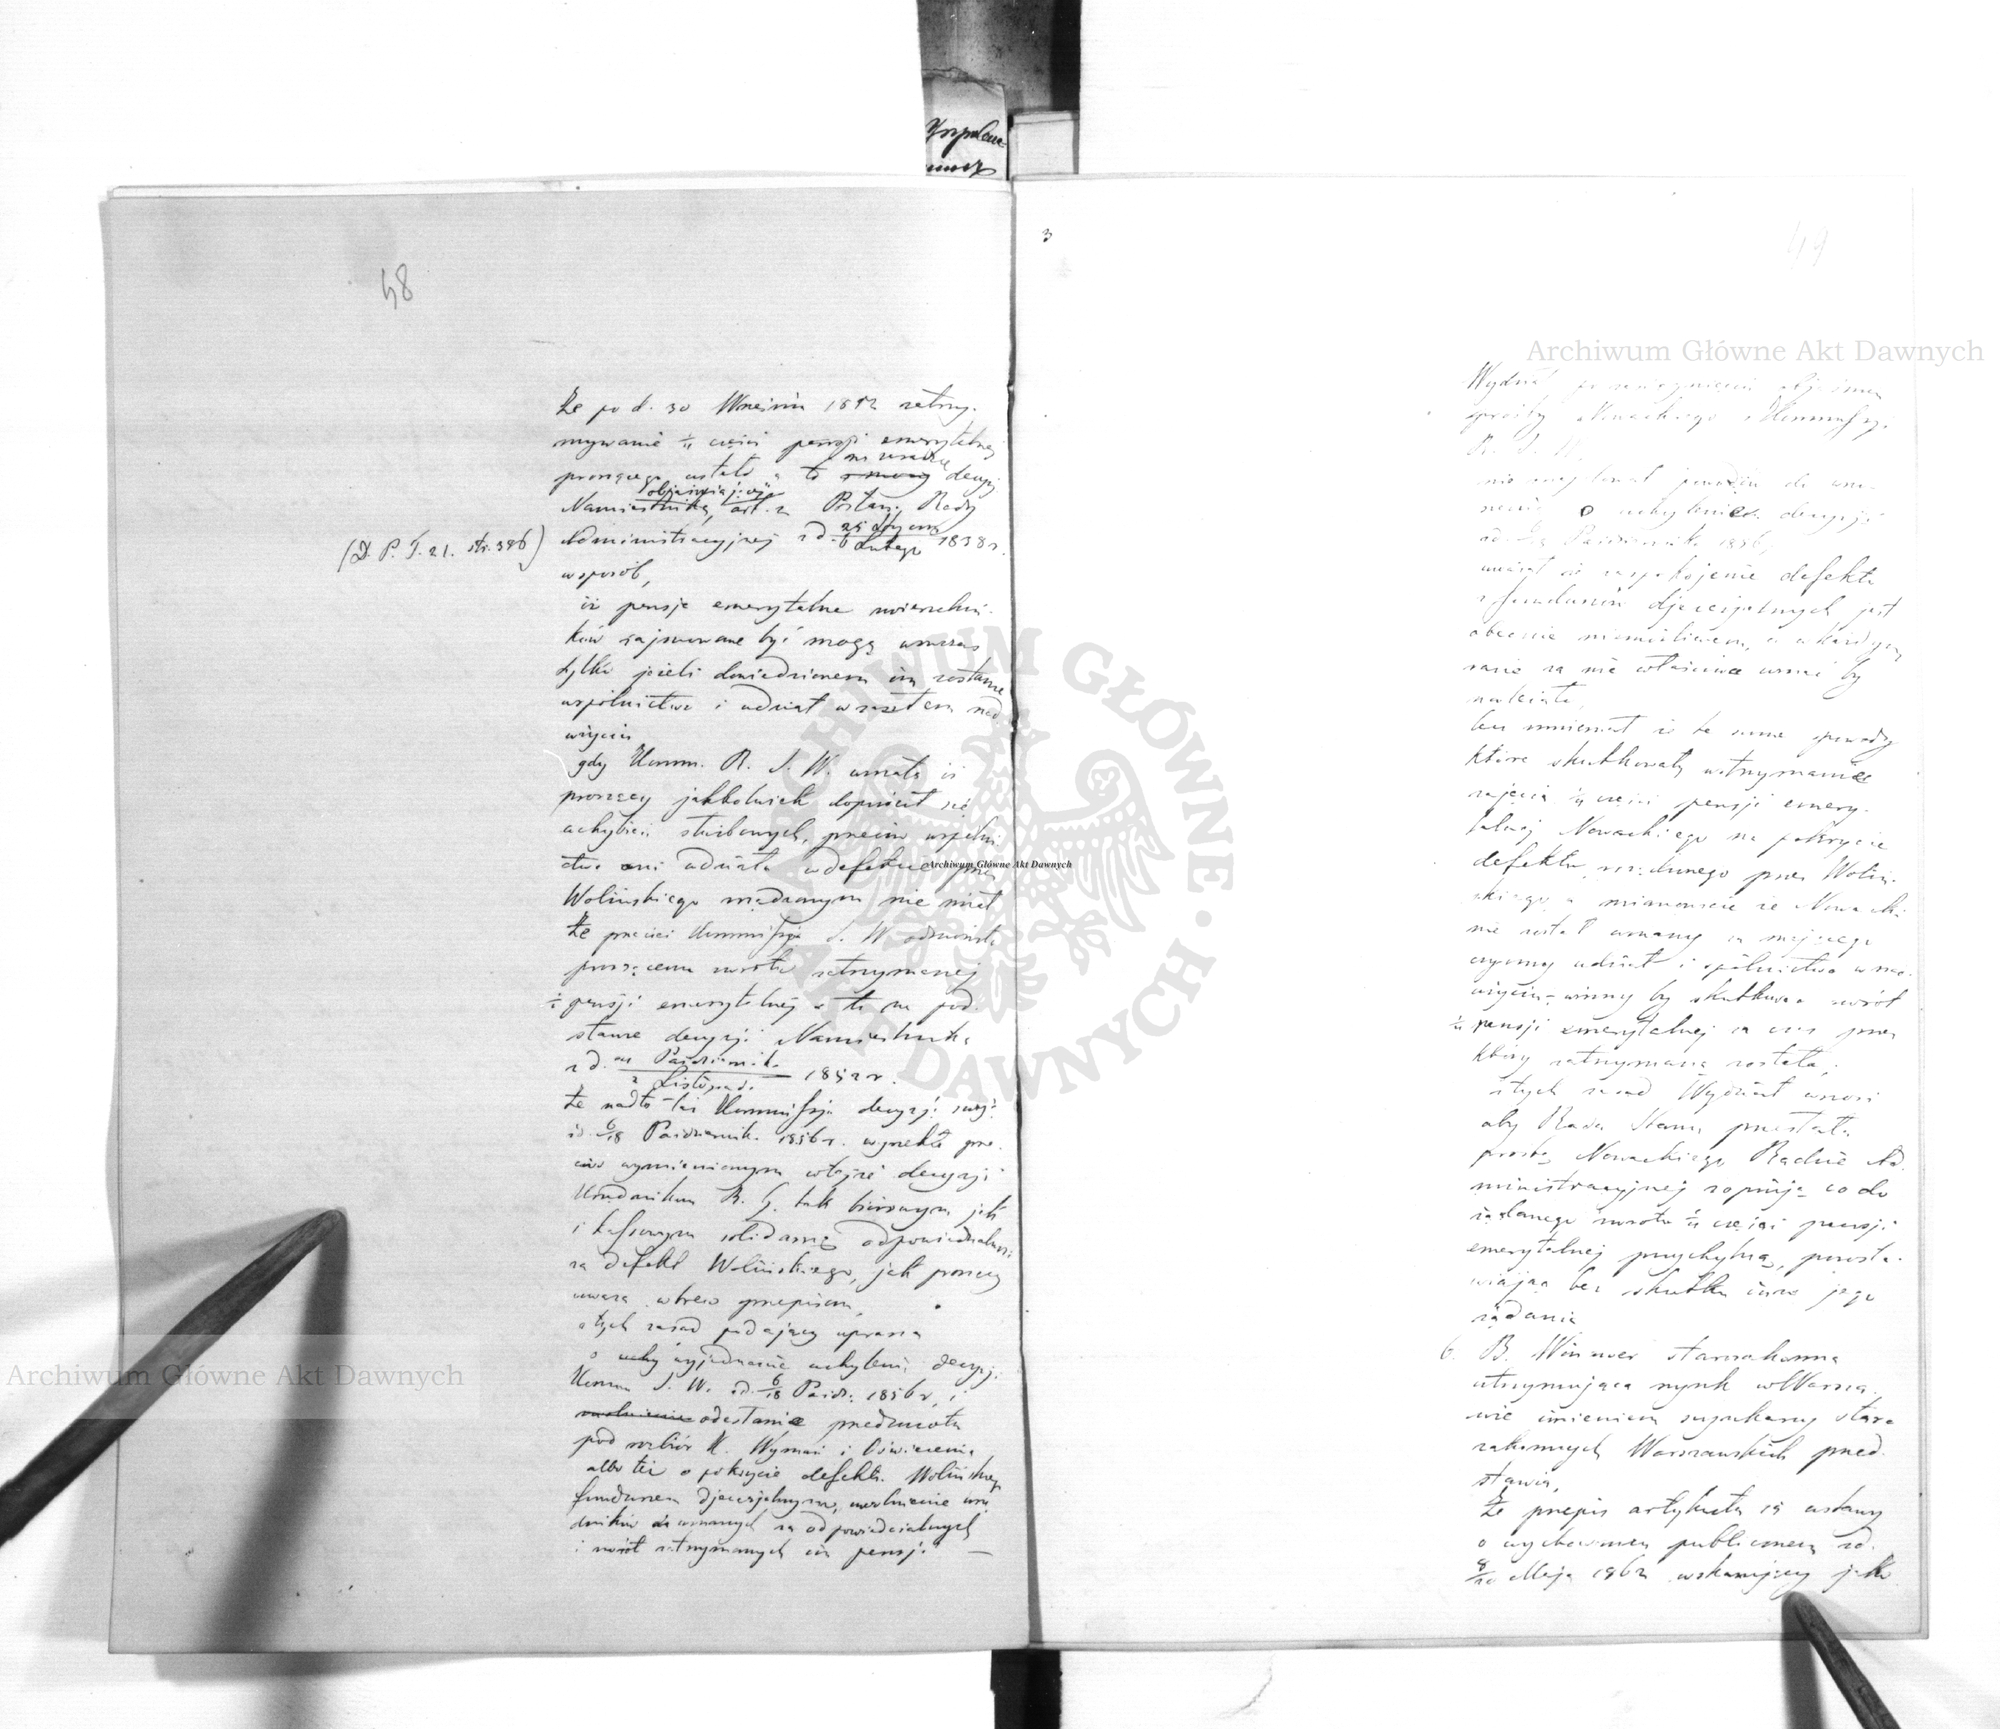 48
Że po d. 30 Września 1852 zatrzy-
mywanie ¼ części pensji emerytalnej
proszącego ustało a to na zasadzie decyzji
Namiestnika, objaśniającej art. 2 Postan. Rady
(D. P. T. 21. str. 386)
Administracyjnej z d. 25 Stycznia / 6 Lutego 1838 r.
w sposób,
iż pensje emerytalne zwierzchni-
ków zajmowane być mogą wówczas
tylko jeżeli dowiedzionem im zostanie
wspólnictwo i udział w zaszłem nad-
użyciu
gdy Komm. R. S. W. uznała iż
proszący jakkolwiek dopuścił się
uchybień służbowych, przecież wspólni-
ctwa ani udziału w defekcie przez
Wolińskiego zrządzonym nie miał
Że przecież Kommissja S. W. odmówiła
proszącemu zwrotu zatrzymanej
pensji emerytalnej a to na pod-
stawie decyzji Namiestnika
z d. Październik. / 2 Listopad. 1852 r.
Że nadto taż Kommissja decyzją swoją
z d. 6/18 Październik. 1856 r. wyrzekła prze-
ciw wymienionym w tejże decyzji
Urzędnikom R. G. tak biurowym jak
i kassowym solidarną odpowiedzialność
za defekt Wolińskiego, jak proszący
uważa wbrew przepisom,
z tych zasad podający uprasza
o wyjednanie uchylenia decyzji
Komm. S. W. z d. 6/18 Paźdz. 1856 r. i
odesłanie przedmiotu
pod rozbiór K. Wyznań i Oświecenia
albo też o pokrycie defektu Wolińskiego
funduszem djecezjalnym, uwolnienie urzę-
dników uznanych za odpowiedzialnych
i zwrot zatrzymanych im pensji —
3
49
Wydział po rozpoznaniu objaśnień
prośby Nowackiego i Kommissji
R. S. W.
nie znajdował powodu do wnie-
sienia o uchylenie decyzji
z d. 6/18 Październik. 1856 r.
uważał iż zaspokojenie defektu
z funduszów djecezjalnych jest
obecnie niemożliwem, a w każdym
razie za nie właściwe uznać by
należało,
lecz mniemał iż te same powody
które skutkowały wstrzymanie
zajęcia ¼ części pensji emery-
talnej Nowackiego na pokrycie
defektu zrządzonego przez Woliń-
skiego, a mianowicie że Nowacki
nie został uznany za mającego
czynny udział i spólnictwo w nad-
użyciu – winny by skutkować zwrot
¼ pensji emerytalnej za czas przez
który zatrzymaną została,
z tych zasad Wydział wnosi
aby Rada Stanu przesłała
prośbę Nowackiego Radzie Ad-
ministracyjnej z opinją co do
żądanego zwrotu ¼ części pensji
emerytalnej przychylną, pozosta-
wiając bez skutku inne jego
żądania
6. B. Winawer starozakonna
utrzymująca szynk w Warsza-
wie imieniem szynkarzy staro-
zakonnych Warszawskich przed-
stawia,
Że przepis artykułu 19 ustawy
o wychowaniu publicznem z d.
8/20 Maja 1862 wskazujący jako
Archiwum Główne Akt Dawnych
Archiwum Główne Akt Dawnych
Archiwum Główne Akt Dawnych
ARCHIWUM GŁÓWNE AKT DAWNYCH